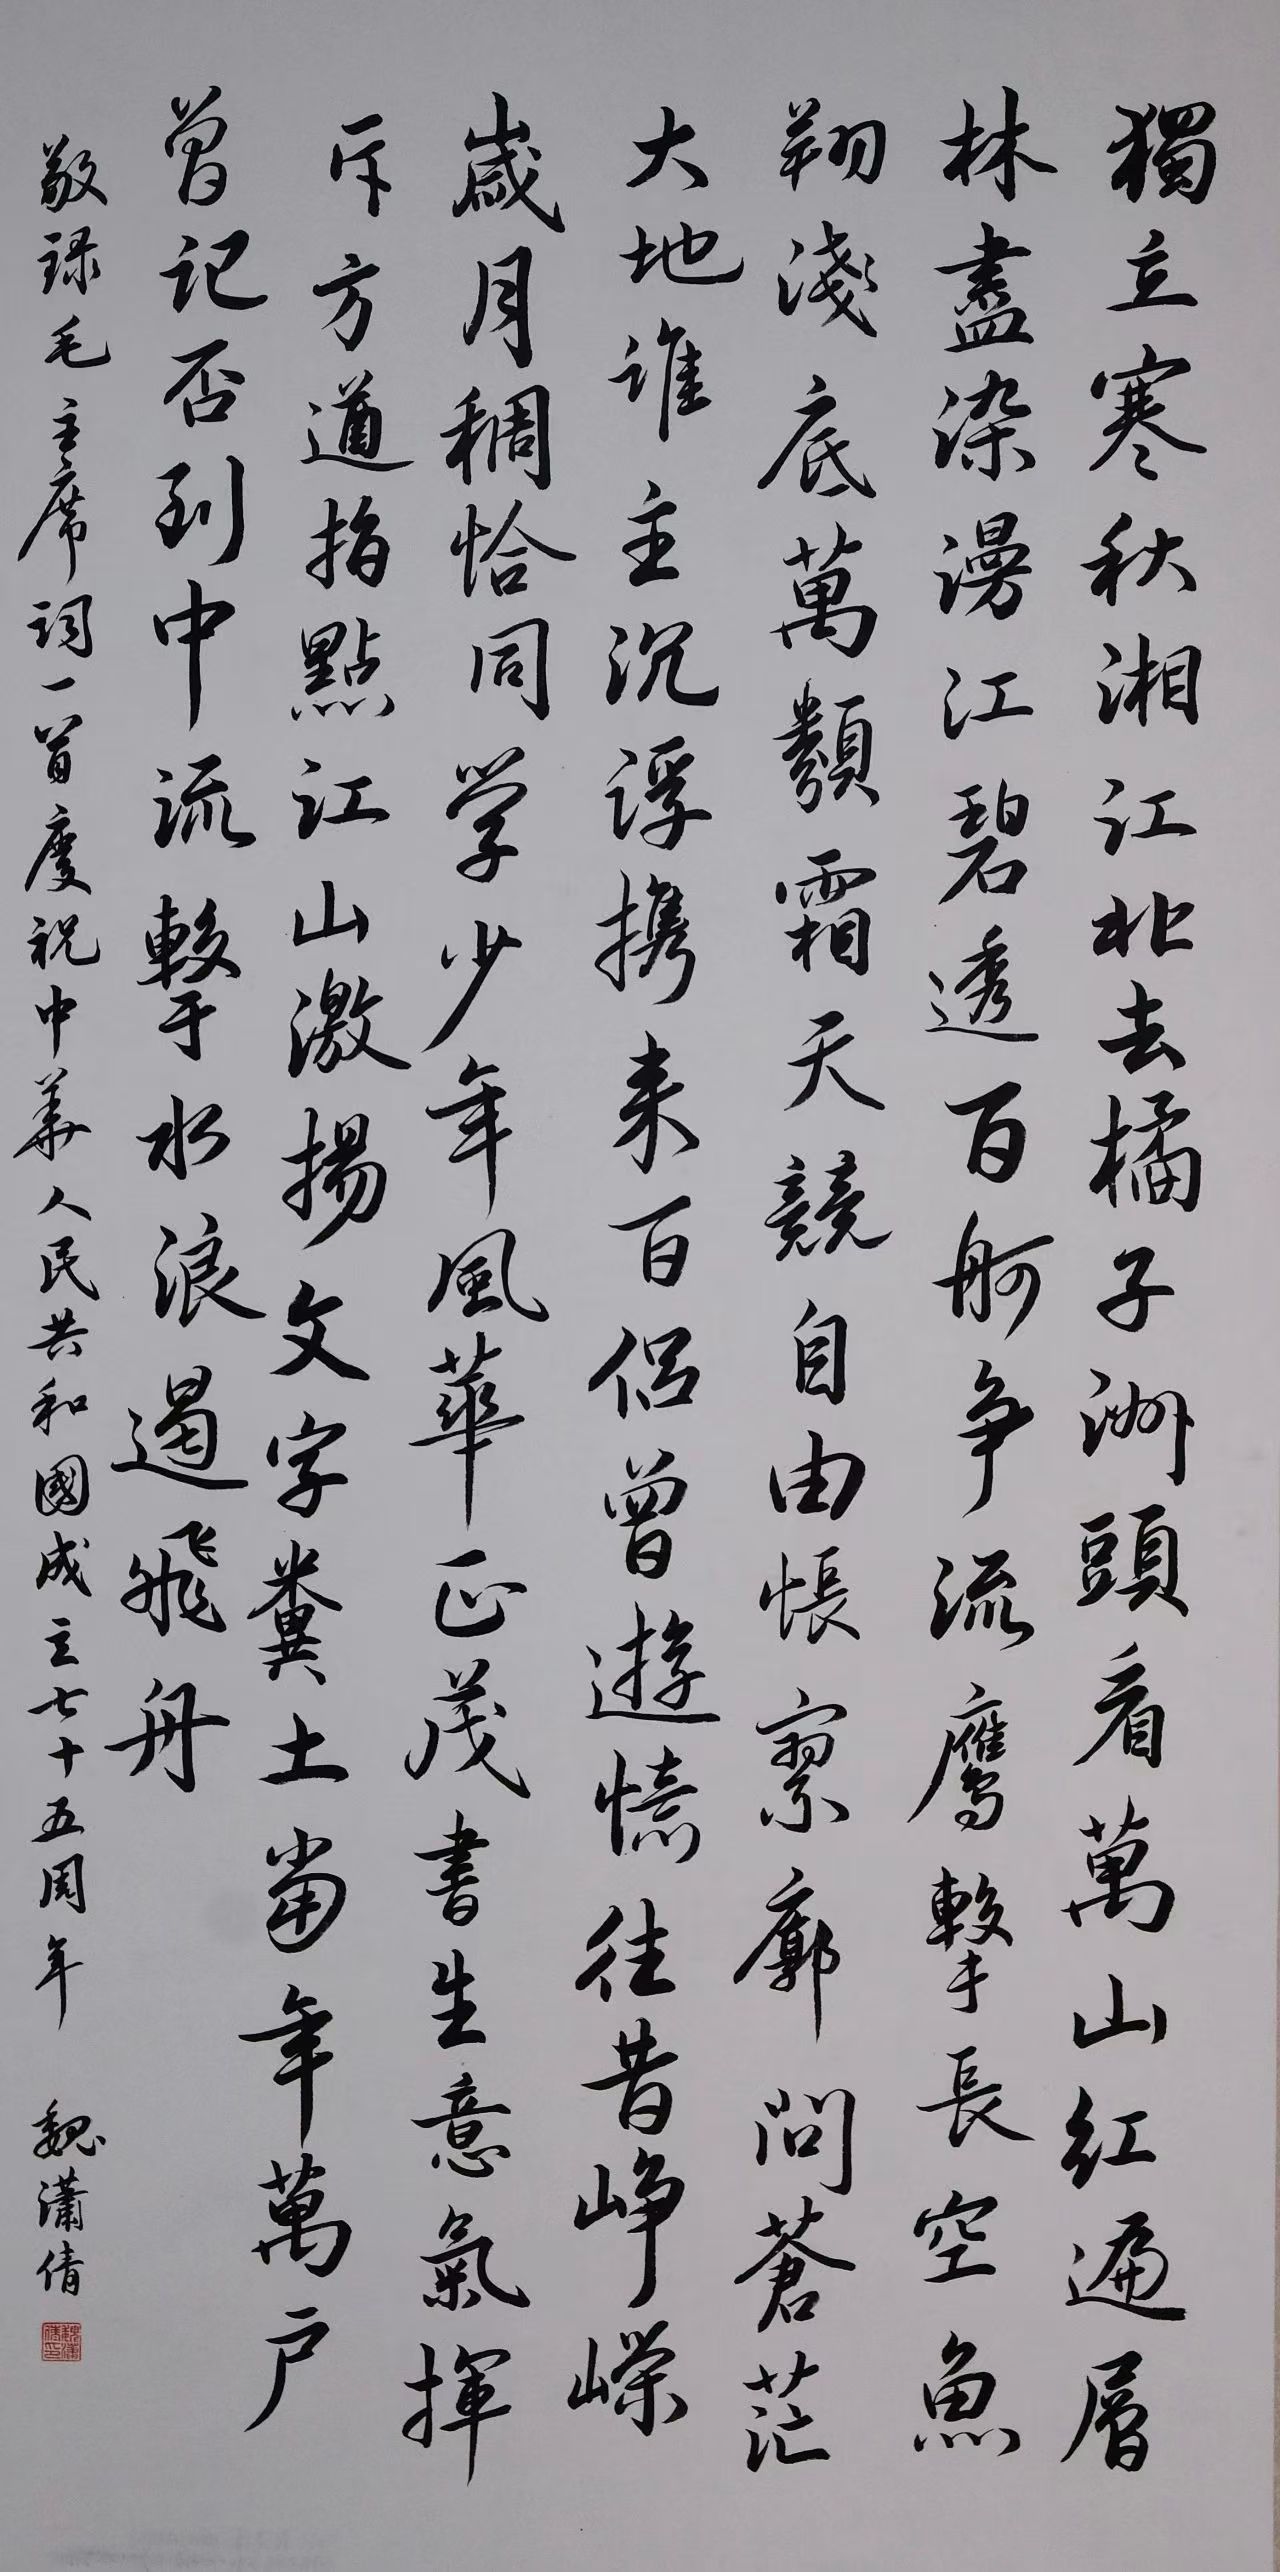 獨立寒秋湘江北去橘子洲頭看萬山紅遍層
林盡染漫江碧透百舸争流鷹擊長空魚
翔淺底萬類霜天競自由悵寥廓問蒼茫
大地誰主沉浮携来百侣曾遊憶往昔崢嶸
歲月稠恰同学少年風華正茂書生意氣揮
斥方遒指點江山激揚文字糞土當年萬户
曾记否到中流擊水浪遏飛舟
敬録毛主席词一首慶祝中華人民共和國成立七十五周年 魏瀟倩